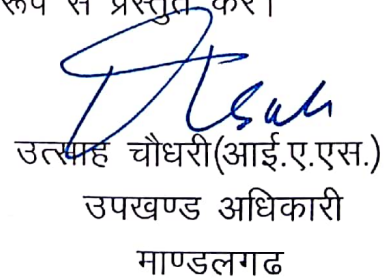 रूप से प्रस्तुत करें।
उत्साह चौधरी(आई.ए.एस.)
उपखण्ड अधिकारी
माण्डलगढ